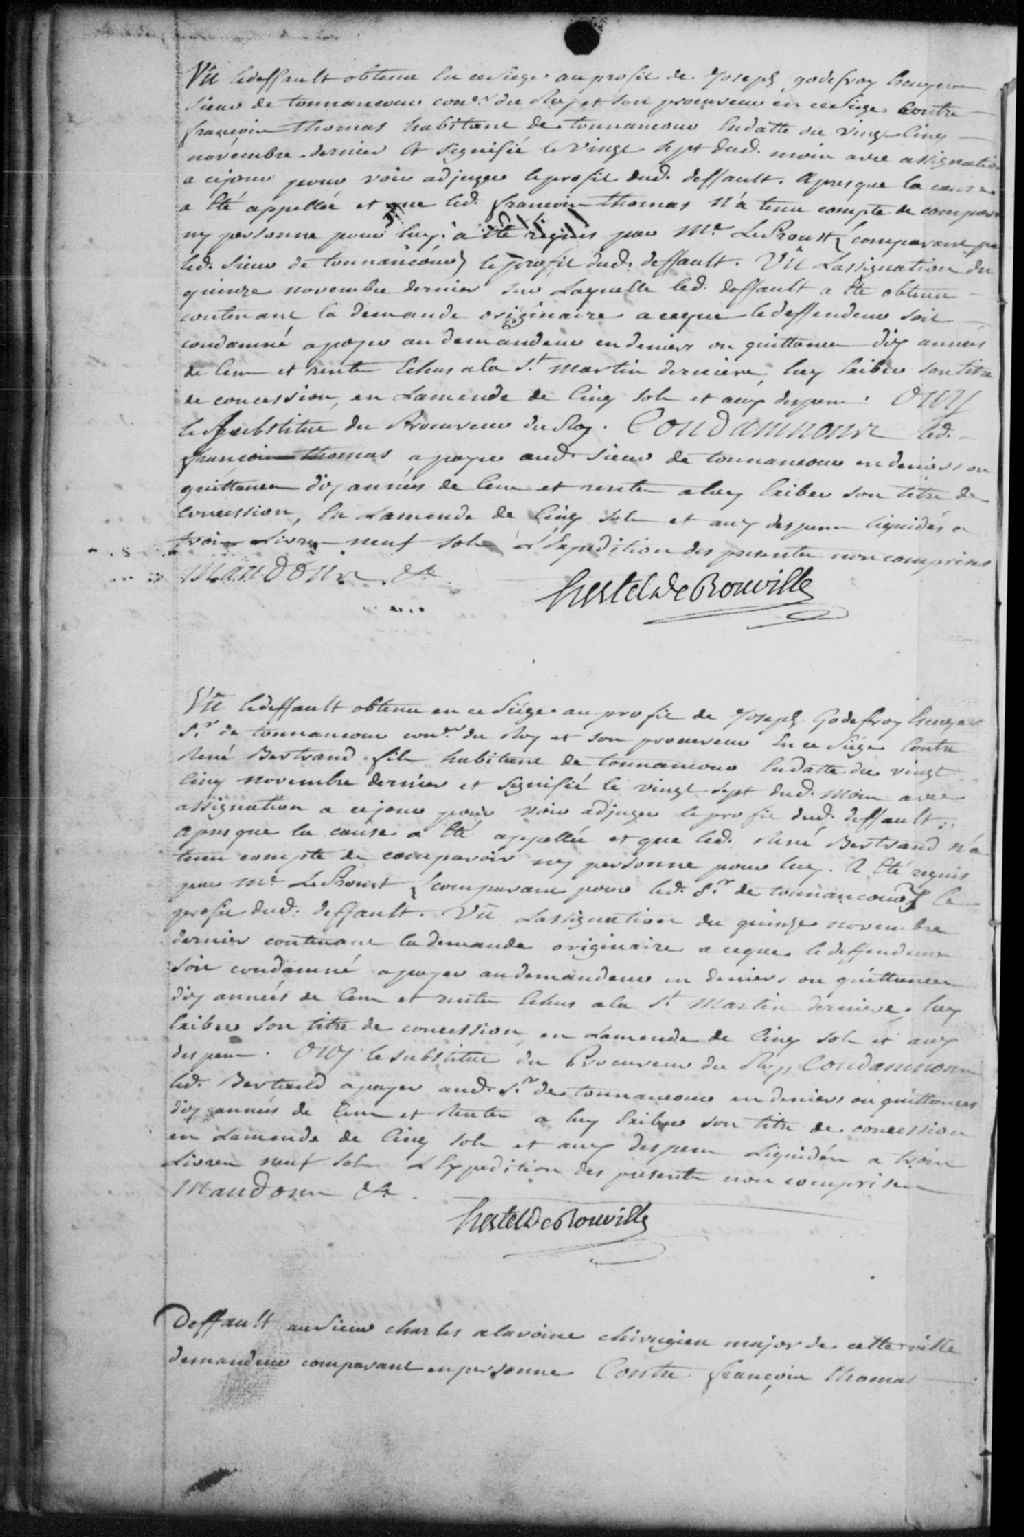 Vû ledeffault obtenu en cesiege au profit de Joseph godefroy Ecuyer
sieur de tonnancour con.er du Roy et son procureur en ce siege Contre
françois Thomas habitant de tonnancour Endatte du vingt Cinq
novembre dernier Et signifié le vingt sept dud. mois avec assignation
a cejour pour voir adjuger leprofit dud. deffault. apresque la cause
a Eté appellée et que led. françois Thomas n'a tenu compte de comparoir
ny personne pour luy. a Eté requis par M.e LeProust (comparant pr
led. sieur de tonnancour) le profit dud. deffault. Vû Lassignation du
quinze novembre dernier sur Laquelle led. deffault a Eté obtenu
contenant la demande originaire a ceque ledeffendeur soit
condamné apayer au demandeur en deniers ou quittances dix années
de Cens et rente Echus ala S.t martin derniere, luy Exiber son titre
de concession, en Lamende de Cinq sols et aux depens. Ouy
le substitut du Procureur du Roy. Condamnons led.
françois Thomas apayer aud. sieur de tonnancour en deniers ou
quittances dix années de Cens et rentes aluy Exiber son titre de
Concession, En Lamende de Cinq sols et aux despens liquidés a
trois Livres neuf sols L'Expedition des presentes non comprises
Mandons &a
hertel de Rouville
Vû ledeffault obtenu en ce siége au profit de Joseph Godefroy Ecuyer
S.r de tonnancour con.er du Roy et son procureur En ce siége Contre
René Bertrand fils habitant de tonnancour Endatte du vingt
Cinq novembre dernier et signifié le vingt sept dud. mois avec
assignation a cejour pour voir adjuger le profit dud. deffault.
apresque la cause a Eté appellée et que led. René Bertrand n'a
tenu compte de comparoir ny personne pour luy. a Eté requis
par M.e LeProust (comparant pour led. S.r de tonnancour) le
profit dud. deffault. Vû Lassignation du quinze novembre
dernier contenant la demande originaire a ceque ledeffendeur
soit condamné apayer au demandeur en deniers ou quittances
dix années de Cens et rentes Echus ala S.t Martin derniere, luy
Exiber son titre de concession, en Lamende de Cinq sols et aux
despens. Ouy le substitut du Procureur du Roy, Condamnons
led. Bertrand apayer aud. S.r de tonnancour en deniers ou quittances
dix années de Cens et Rentes a luy Exiber son titre de concession
en Lamende de Cinq sols et aux despens Liquidés a trois
Livres neuf sols L'Expedition des presentes non comprises
Mandons &a.
hertel de Rouville
Deffault au sieur charles alavoine chirugien major de cette ville
demandeur comparant en personne Contre françois Thomas